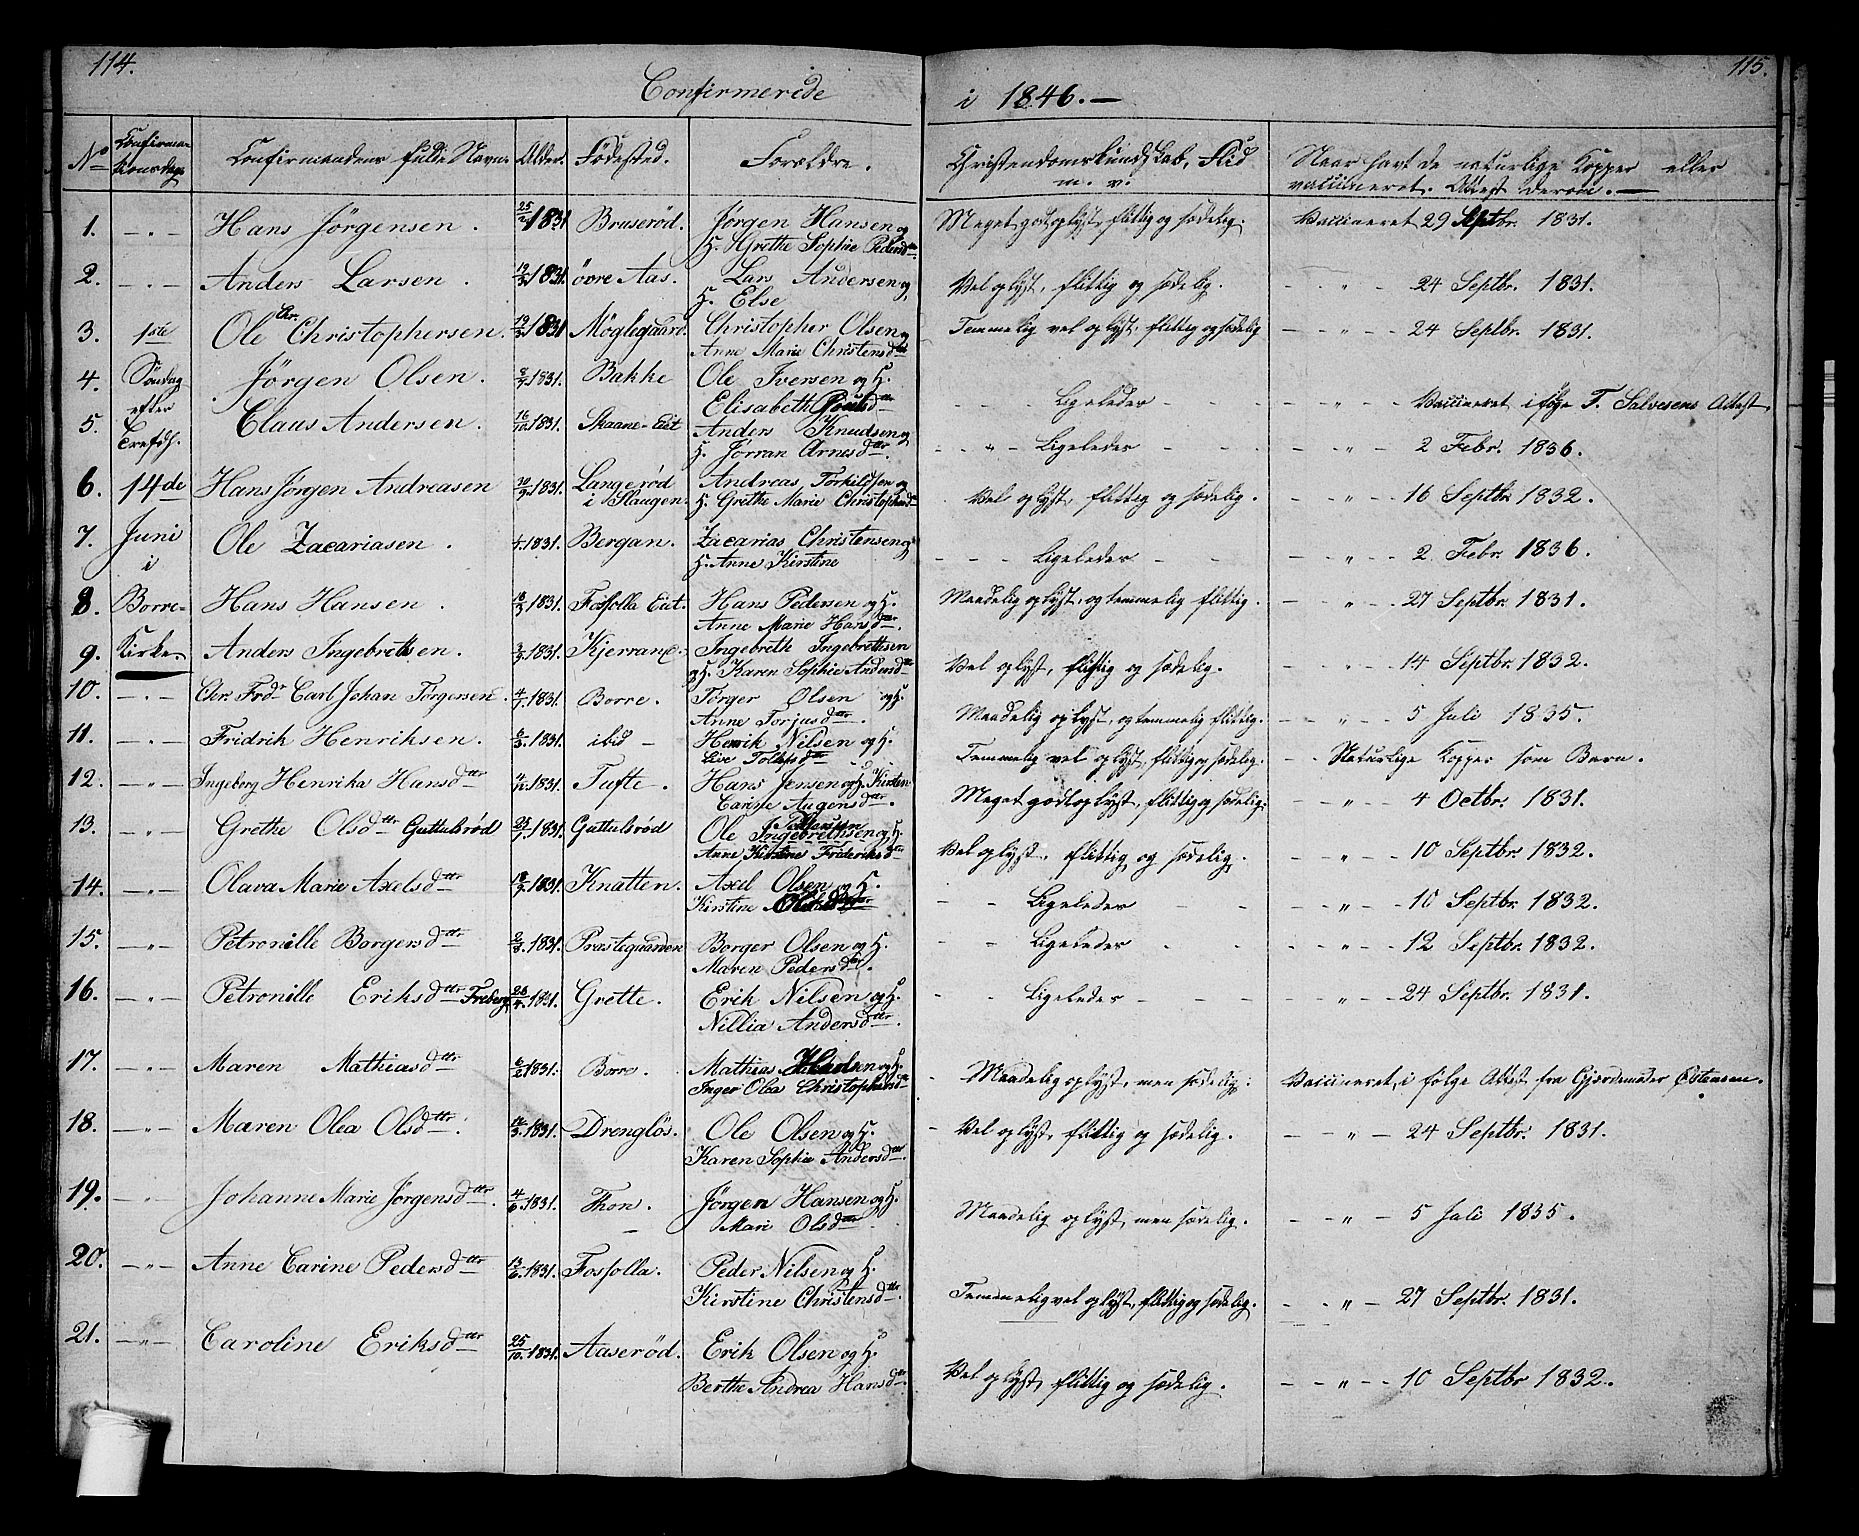 114.
115.
Confirmerede
i 1846.—
No Confirmationsdag Confirmandens fulde Navn. Alder. Fødested. Forældre. Christendomskundskab, Flid m. v. Naar havt de naturlige Kopper eller vaccineret. Attest derom.—
1. —„— Hans Jörgensen. 1831 Bruserød. Jörgen Hansen og H. Grethe Sophie Pedersdttr. Meget godt oplyst, flittig og sædelig. Vaccineret 29 Septbr. 1831.
2. —„— Anders Larsen. 1831 övre Aas. Lars Andersen og H. Else Vel oplyst, flittig og sædelig. — „ — 24 Septbr. 1831.
3. 1ste Ole Chr. Christophersen. 1831 Möglegaard. Christopher Olsen og Anne Marie Christensdttr Temmelig vel oplyst, flittig og sædelig — „ — 24 Septbr. 1831.
4. Søndag Jörgen Olsen. 1831. Bakke Ole Iversen og H. Elisabeth Poulsdttr — Ligeledes — „ — Vaccineret ifølge T. Salvesens Attest.
efter
5. Trefdh. Claus Andersen. 16/10 1831. Skaane-Eiet Anders Knudsen og H. Jörran Arnesdttr. — „ — Ligeledes — „ — 2 Febr. 1836.
6. 14de Hans Jörgen Andreasen 1831. Langerød i Slaugen. Andreas Torkildsen og H. Grethe Marie Christophersdttr Vel oplyst, flittig og sædelig. — „ — 16 Septbr. 1832.
7. Juni Ole Zacariasen. 1831. Bergan. Zacarias Christensen og H. Anne Kirstine — Ligeledes — „ — 2 Febr. 1836.
i
8. Borre- Hans Hansen. 1831. Fosfolla Eiet. Hans Pedersen og H. Anne Marie Hansdttr. Maadelig oplyst, og temmelig flittig. — „ — 27 Septbr. 1831.
9. Kirke. Anders Ingebrethsen. 1831. Kjerran Ingebreth Ingebrethsen og H. Karen Sophie Andersdttr Vel oplyst, flittig og sædelig. „ 14 Septbr. 1832.
10. —„— Chr. Frdr. Carl Johan Törgersen. 1831. Borre. Törger Olsen og H. Anne Torjusdttr. Maadelig oplyst, og temmelig flittig. — „ — 5 Juli 1835.
11. —„— Fridrik Henriksen. 1831. ibid — Henrik Nilsen og H. Live Tollefsdttr Temmelig vel oplyst, flittig og sædelig. — Naturlige Kopper som Barn.
12. —„— Ingeborg Henrika Hansdttr 1831. Tufte. Hans Jensen og H. Kirsten Carine Augensdttr. Meget godt oplyst, flittig og sædelig. — „ — 4 Octbr. 1831.
13. —„— Grethe Olsdttr Guttulsrød 1831. Guttulsrød Ole Ingebrethsen og H. Anne Kirstine Frideriksdttr Vel oplyst, flittig og sædelig. — „ — 10 Septbr. 1832.
14. —„— Olava Marie Axelsdttr 1831. Knatten. Axel Olsen og H. Kirstine — Ligeledes — „ — 10 Septbr. 1832.
15. —„— Petronille Borgersdttr 1831. Præstegaarden Borger Olsen og H. Maren Pedersdttr. — Ligeledes — „ — 12 Septbr. 1832.
16. —„— Petronille Eriksdttr Freberg 26/4 1831. Grette. Erik Nilsen og H. Nillia Andersdttr. — Ligeledes — „ — 24 Septbr. 1831.
17. —„— Maren Mathiasdttr 1831. Borre. Mathias og H. Inger Olea Christophersdttr — Maadelig oplyst, men sædelig. Vaccineret, i følge Attest fra Gjordemoder Östensen.
18. —„— Maren Olea Olsdttr. 1831. Drenglös. Ole Olsen og H. Karen Sophie Andersdttr. — Vel oplyst, flittig og sædelig. — „ — 24 Septbr. 1831.
19. —„— Johanne Marie Jörgensdttr. 4/6 1831. Thon. Jörgen Hansen og H. Mari Olsdttr. Maadelig oplyst, men sædelig. — „ — 5 Juli 1835.
20. —„— Anne Carine Pedersdttr 13/6 1831. Fosfolla. Peder Nilsen og H. Kirstine Christensdttr. Temmelig vel oplyst, flittig og sædelig. — „ — 27 Septbr. 1831.
21. —„— Caroline Eriksdttr 25/10 1831. Aaserød. Erik Olsen og H. Berthe Andrea Hansdttr. Vel oplyst, flittig og sædelig. — „ — 10 Septbr 1832.